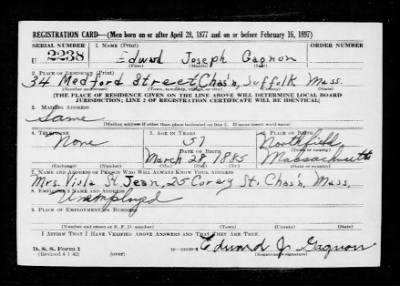 REGISTRATION CARD—(Men born on or after April 28, 1877 and on or before February 16, 1897)
SERIAL NUMBER 1. NAME (Print)
U 2238 Edward Joseph Gagnon
(First) (Middle) (Last)
2. PLACE OF RESIDENCE (Print)
34 Medford Street, Chas'n, Suffolk Mass.
(Number and street) (Town, township, village, or city) (County) (State)
[THE PLACE OF RESIDENCE GIVEN ON THE LINE ABOVE WILL DETERMINE LOCAL BOARD
JURISDICTION; LINE 2 OF REGISTRATION CERTIFICATE WILL BE IDENTICAL]
3. MAILING ADDRESS
Same
(Mailing address if other than place indicated on line 2. If same insert word same)
4. TELEPHONE 5. AGE IN YEARS 6. PLACE OF BIRTH
None 57 Northfield
DATE OF BIRTH (Town or county)
March 28 1885 Massachusetts
(Exchange) (Number) (Mo.) (Day) (Yr.) (State or country)
7. NAME AND ADDRESS OF PERSON WHO WILL ALWAYS KNOW YOUR ADDRESS
Mrs. Viola St. Jean, 25 Corey St. Chas'n, Mass.
8. EMPLOYER'S NAME AND ADDRESS
Unemployed
9. PLACE OF EMPLOYMENT OR BUSINESS
(Number and street or R. F. D. number) (Town) (County) (State)
I AFFIRM THAT I HAVE VERIFIED ABOVE ANSWERS AND THAT THEY ARE TRUE.
D. S. S. Form 1
(Revised 4-1-42) (over) Edward J. Gagnon
(Registrant's signature)